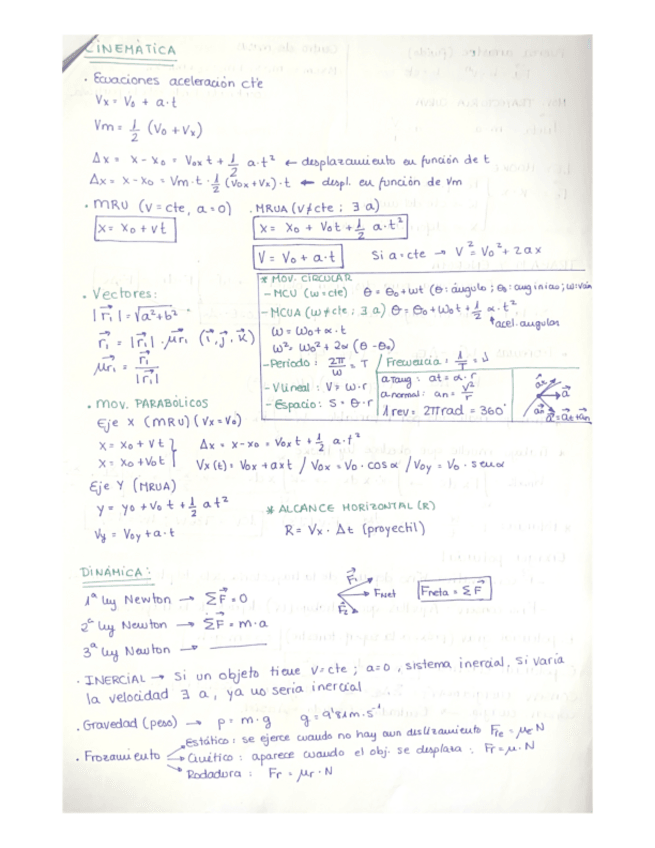 CINEMÁTICA
· Ecuaciones aceleración cte
Vx = V₀ + a·t
Vm = 1/2 (V₀ + Vx)
Δx = x - x₀ = V₀x t + 1/2 a·t² ← desplazamiento en función de t
Δx = x - x₀ = Vm·t · 1/2 (V₀x + Vx)·t ← despl. en función de Vm
· MRU (V = cte, a = 0)
x = x₀ + vt
· MRUA (V ≠ cte ; ∃ a)
x = x₀ + V₀t + 1/2 a·t²
V = V₀ + a·t
Si a = cte → V² = V₀² + 2ax
* MOV. CIRCULAR
- MCU (ω = cte) θ = θ₀ + ωt (θ: ángulo ; θ₀: ang
- MCUA (ω ≠ cte ; ∃ a) θ = θ₀ + ω₀t + 1/2 α·t²
acel. angular
ω = ω₀ + α·t
ω² = ω₀² + 2α (θ - θ₀)
- Período: 2π/ω = T / Frecuencia: 1/T = ν
- V lineal: V = ω·r
- Espacio: S = θ·r
a tang: at = α·r
a normal: an = V²/r
1 rev = 2π rad = 360°
at
a
an
a = at + an
· Vectores:
|r₁| = √a² + b²
r₁ = |r₁| · μr₁ (i, j, k)
μr₁ = r₁/|r₁|
· MOV. PARABÓLICOS
Eje X (MRU) (Vx = V₀)
x = x₀ + vt
x = x₀ + V₀t
Δx = x - x₀ = V₀x t + 1/2 a·t²
Vx(t) = V₀x + axt / V₀x = V₀·cos α / V₀y = V₀·sen α
Eje Y (MRUA)
y = y₀ + V₀t + 1/2 at²
Vy = V₀y + a·t
* ALCANCE HORIZONTAL (R)
R = Vx · Δt (proyectil)
DINÁMICA:
1ª ley Newton → ΣF = 0
2ª ley Newton → ΣF = m·a
3ª ley Newton →
F₁
Fnet
F₂
Fneta = ΣF
· INERCIAL → Si un objeto tiene V = cte ; a = 0, sistema inercial, si varía
la velocidad ∃ a, ya no sería inercial
· Gravedad (peso) → p = m·g g = 9'81 m·s⁻¹
· Frozamiento
Estático: se ejerce cuando no hay aun deslizamiento Fre = μe N
Cinético: aparece cuando el obj. se desplaza : Fr = μ·N
Rodadura: Fr = μr·N